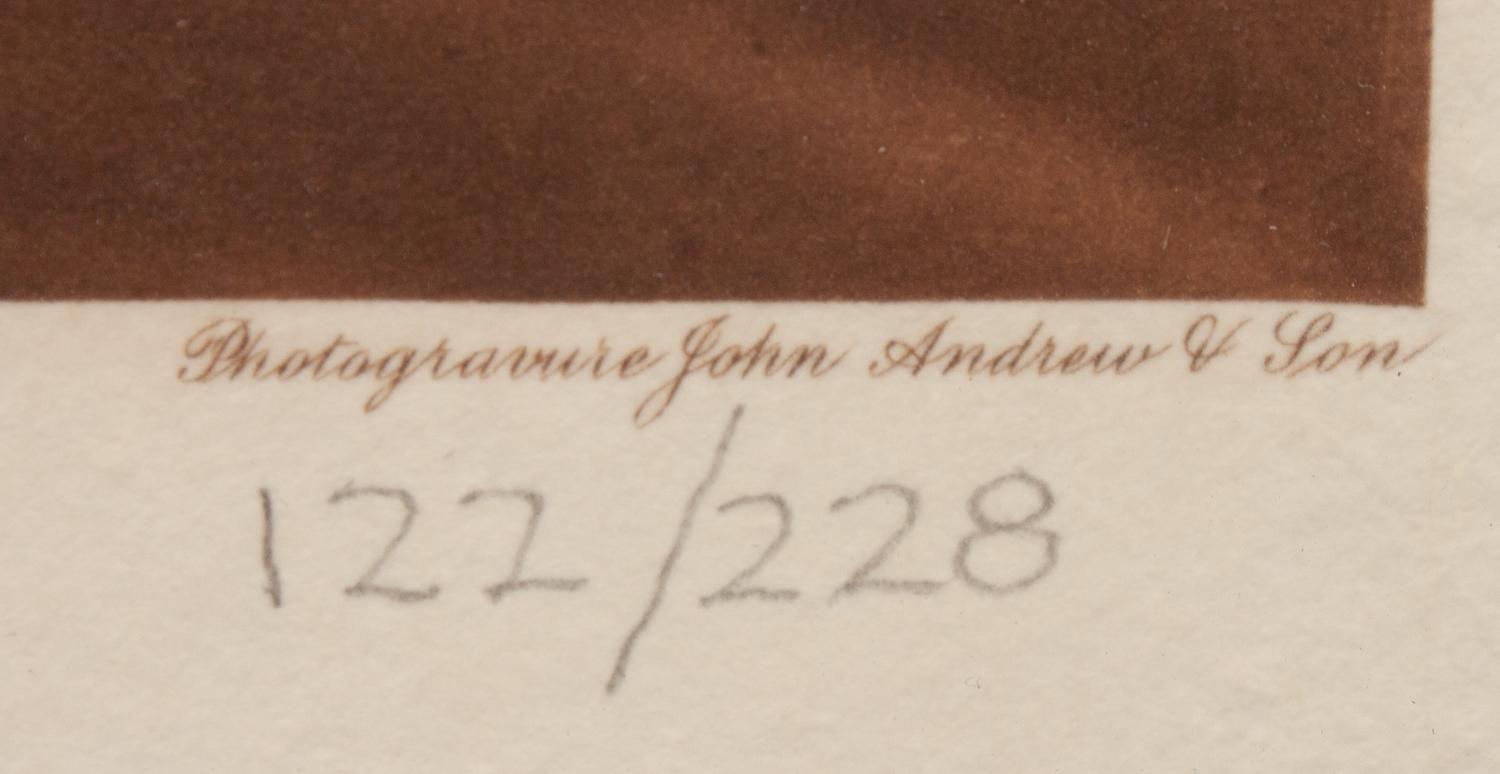 Photogravure John Andrew & Son
122/228